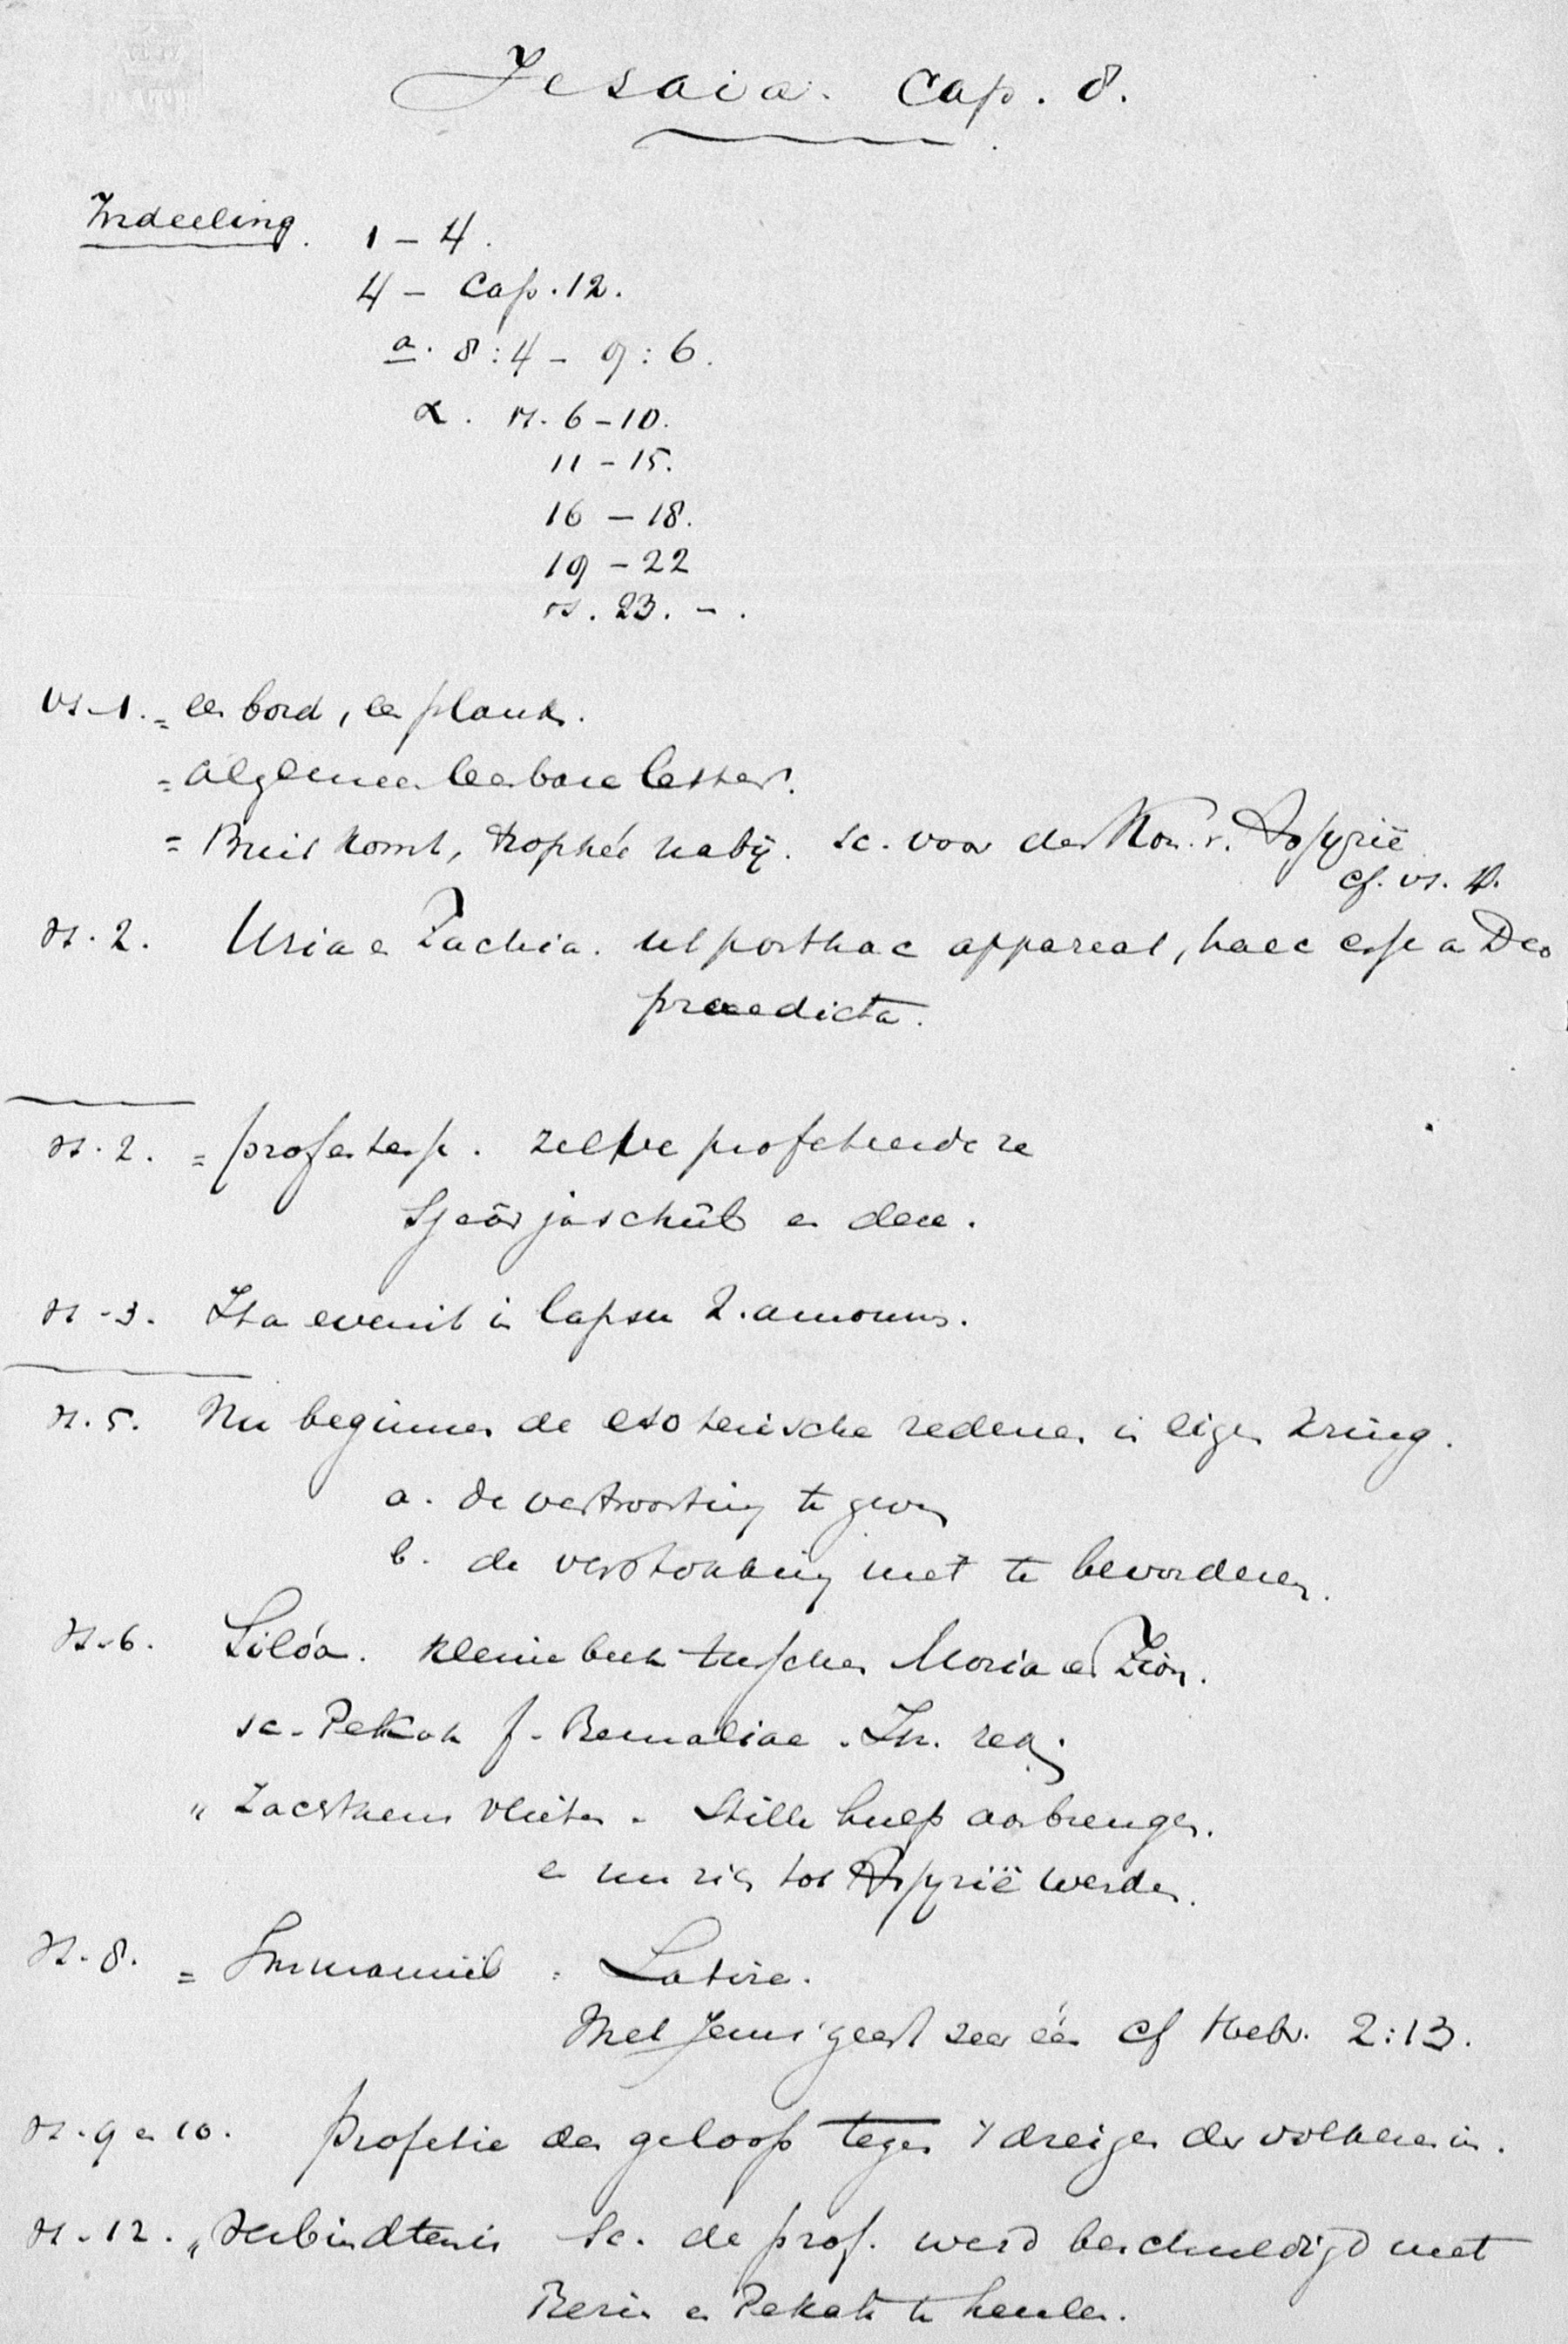 Jesaia. Cap. 8.
Indeeling. 1 – 4.
4 – Cap. 12.
a. 8:4 – 9:6.
α. vs. 6 – 10.
11 – 15.
16 – 18.
19 – 22
vs. 23. – .
vs. 1. = een bord, een plank.
= algemeen leesbare letters.
= Buit komt, trophée nabij. sc. voor den Kon. v. Assyrië
cf. vs. 4.
vs. 2. Uria en Zachia. ut posthac appareat, haec esse a Deo
praedicta.
vs. 2. = profetesse. zelve profeteerde ze
Sjeár jaschûb en deze.
vs. 3. Ita evenit in lapsu 2. annorum.
vs. 5. Nu beginnen de esoterische redenen in eigen kring.
a. de vertroosting te geven
b. de verstokking niet te bevorderen.
vs. 6. Silóa. kleine beek tusschen Moria en Zion.
sc. Pekah f. Remaliae. Isr. reg.
" zachtkens vlieten. Stille hulp aanbrengen.
en nu zich tot Assyrië wenden.
vs. 8. = Immanuël.
Met Jezus' geest zeer één cf Hebr. 2:13.
vs. 9 en 10. Profetie des geloofs tegen 't dreigen der volkeren in.
vs. 12. " Verbindtenis sc. de prof. werd beschuldigd met
Rezin en Pekah te heulen.